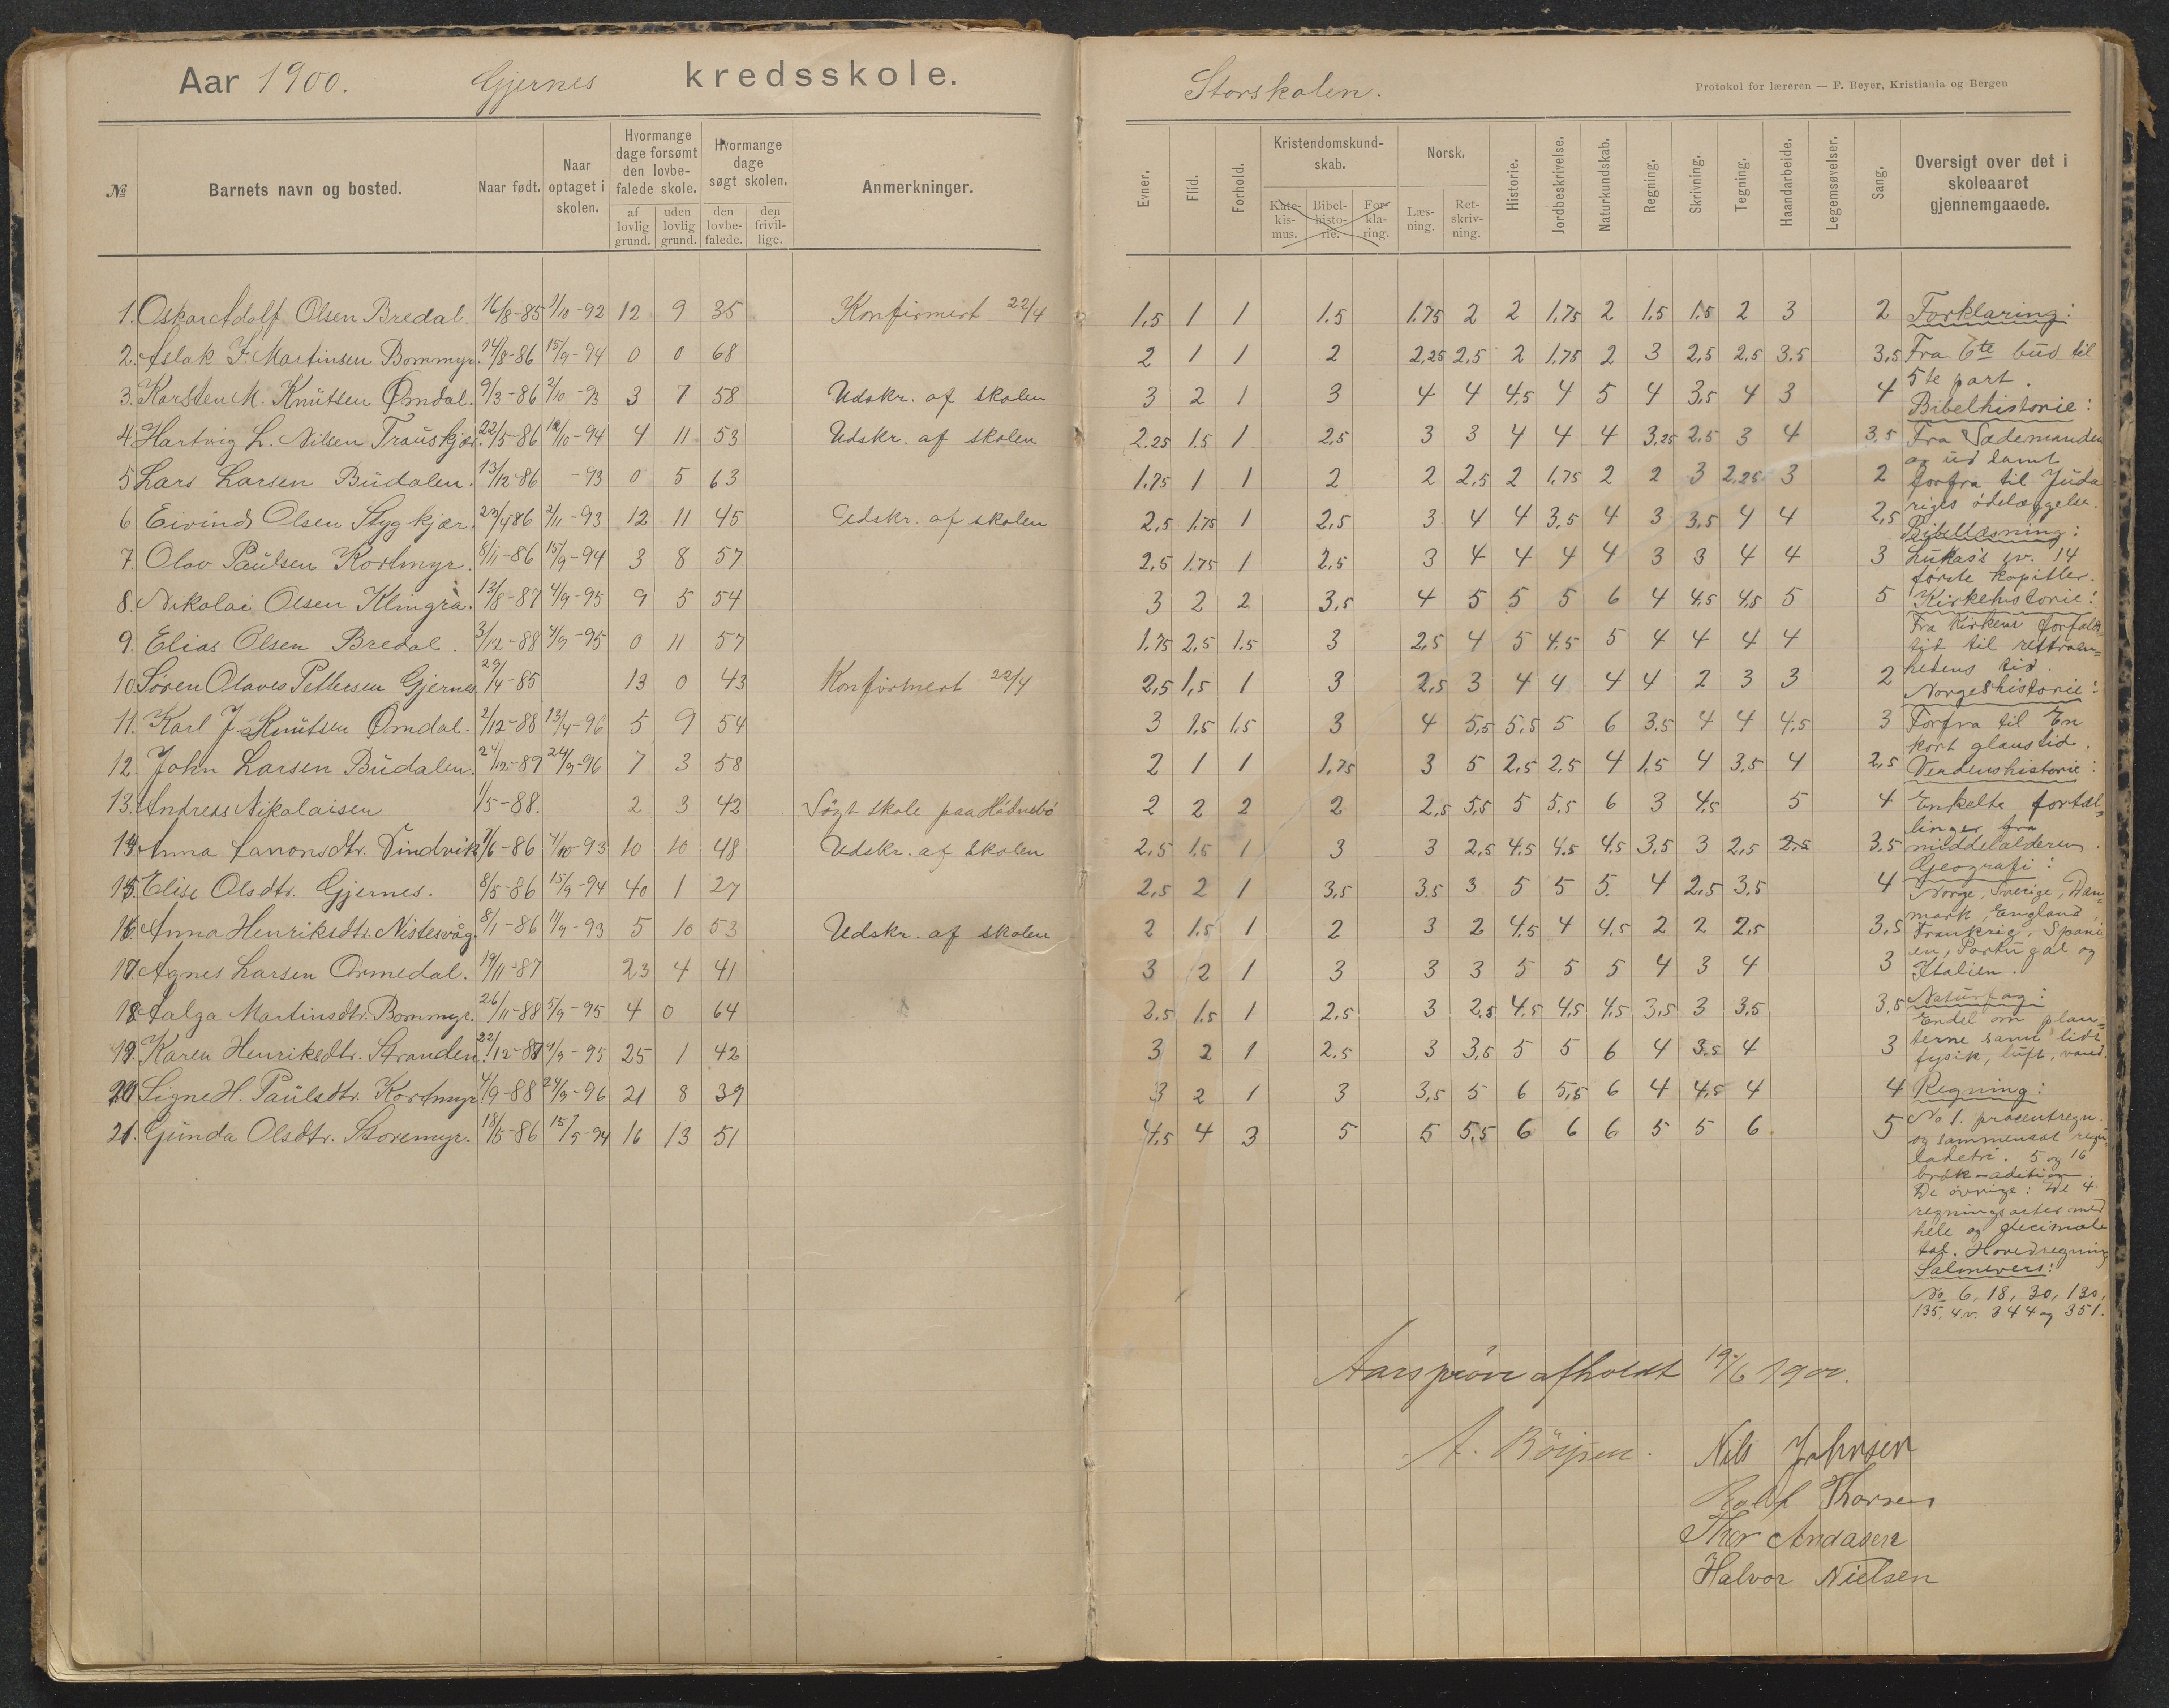 Aar 1900. Gjernes kredsskole.
№ Barnets navn og bosted. Naar født. Naar optaget i skolen. Hvormange dage forsømt den lovbefalede skole. af lovlig grund. uden lovlig grund. Hvormange dage søgt skolen. den lovbefalede. den frivillige. Anmerkninger.
1. Oskar Adolf Olsen Bredal. 16/8-85 1/10-92 12 9 35 Konfirmert 22/4
2. Aslak F. Martinsen Bommyr. 14/8-86 15/9-94 0 0 68
3. Karsten M. Knutsen Ømdal. 9/3-86 2/10-93 3 7 58 Udskr. af skolen
4. Hartvig L. Nilsen 22/5-86 /10-94 4 11 53 Udskr. af skolen
5 Lars Larsen Budalen. 13/12-86 -93 0 5 63
6 Eivind Olsen Stygkjær. 23/4 86 2/11-93 12 11 45 Udskr. af skolen
7. Olav Paulsen Kortmyr. 8/11-86 15/9-94 3 8 57
8. Nikolai Olsen Klingra. 13/8-87 4/9-95 9 5 54
9. Elias Olsen Bredal. 3/12-88 4/9-95 0 11 57
10 Søren Olaves Pettersen Gjernes. 29/4-85 13 0 43 Konfirmert 22/4
11. Karl J. Knutsen Ømdal. 2/12-88 13/4-96 5 9 54
12. John Larsen Budalen. 24/12-89 24/9-96 7 3 58
13. Andreas Nikolaisen 1/5-88. 2 3 42 Søgt skole paa
14. Anna Aanonsdtr. Tindvik 7/6-86 4/10-93 10 10 48 Udskr. af skolen
15. Elise Olsdtr. Gjernes. 8/5-86 15/9-94 40 1 27
16. Anna Henriksdtr. Nistesvåg. 8/1-86 11/9-93 5 10 53 Udskr. af skolen
17. Agnes Larsen Ormedal. 19/11-87 23 4 41
18. Aalga Martinsdtr. Bommyr. 26/11-88 5/9-95 4 0 64
19. Karen Henriksdtr. Stranden. 22/12-87 4/9-95 25 1 42
20 Signe H. Paulsdtr. Kortmyr. 4/9-88 24/9-96 21 8 39
21. Gunda Olsdtr. Storemyr. 18/5-86 15/9-94 16 13 51
Storskolen.
Protokol for læreren — F. Beyer, Kristiania og Bergen
Evner. Flid. Forhold. Kristendomskundskab. Katekismus. Bibelhistorie. Forklaring. Norsk. Læsning. Retskrivning. Historie. Jordbeskrivelse. Naturkundskab. Regning. Skrivning. Tegning. Haandarbeide. Legemsøvelser. Sang. Oversigt over det i skoleaaret gjennemgaaede.
1,5 1 1 1.5 1.75 2 2 1,75 2 1,5 1.5 2 3 2
2 1 1 2 2,25 2,5 2 1,75 2 3 2,5 2,5 3,5 3,5
3 2 1 3 4 4 4,5 4 5 4 3,5 4 3 4
2.25 1.5 1 2,5 3 3 4 4 4 3,25 2,5 3 4 3,5
1,75 1 1 2 2 2,5 2 1,75 2 2 3 2,25 3 2
2,5 1.75 1 2,5 3 4 4 3,5 4 3 3,5 4 4 2,5
2,5 1.75 1 2,5 3 4 4 4 4 3 3 4 4 3
3 2 2 3,5 4 5 5 5 6 4 4,5 4,5 5 5
1.75 2,5 1.5 3 2,5 4 5 4,5 5 4 4 4 4
2,5 1,5 1 3 2,5 3 4 4 4 4 2 3 3 2
3 1,5 1,5 3 4 5,5 5,5 5 6 3,5 4 4 4,5 3
2 1 1 1,75 3 5 2,5 2,5 4 1,5 4 3,5 4 2,5
2 2 2 2 2,5 5,5 5 5,5 6 3 4,5 5 4
2,5 1.5 1 3 3 2,5 4,5 4,5 4,5 3,5 3 2,5 2,5 3,5
2,5 2 1 3,5 3.5 3 5 5 5 4 2,5 3,5 4
2 1.5 1 2 3 2 4,5 4 4,5 2 2 2,5 3,5
3 2 1 3 3 3 5 5 5 4 3 4 3
2.5 1.5 1 2.5 3 2,5 4,5 4,5 4,5 3,5 3 3,5 3,5
3 2 1 2.5 3 3,5 5 5 6 4 3.5 4 3
3 2 1 3 3,5 5 6 5,5 6 4 4,5 4 4
4,5 4 3 5 5 5,5 6 6 6 5 5 6 5
Forklaring:
Fra 6te bud til
5te part.
Bibelhistorie:
Fra Sædemanden
og ud samt
forfra til Juda
riges ødelæggelse.
Bibellæsning:
Lukas's ev. 14
første kapitler.
Kirkehistorie:
Fra Kirkens forfalds-
tid til rettroen-
hedens tid.
Norgeshistorie:
Forfra til En
kort glanstid.
Verdenshistorie:
Enkelte fortæl-
linger fra
middelalderen.
Geografi:
Norge, Sverige, Dan-
mark, England,
Frankrig, Spani-
en, Portugal og
Italien.
Naturfag:
Endel om plan-
terne samt lidt
fysik, luft, vand.
Regning:
No 1. procentregn.
og sammensat regu-
ladetri. 5 og 16
brøk-adition.
De øvrige: De 4
regningsarter med
hele og decimale
tal. Hovedregning
Salmevers:
No 6, 18, 30, 130,
135, 4 v. 344 og 351.
Aarsprøve afholdt 19/6 1900.
A. Nils Johnsen
Rolf Thorsen
Thor Andasen
Halvor Nielsen